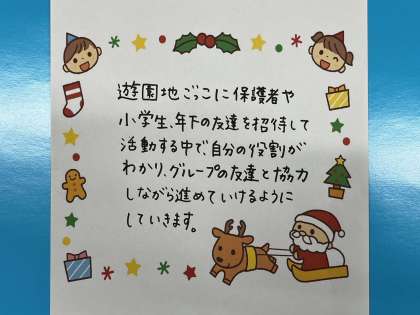 遊園地ごっこに保護者や
小学生、年下の友達を招待して
活動する中で、自分の役割が
わかり、グループの友達と協力
しながら進めていけるように
していきます。